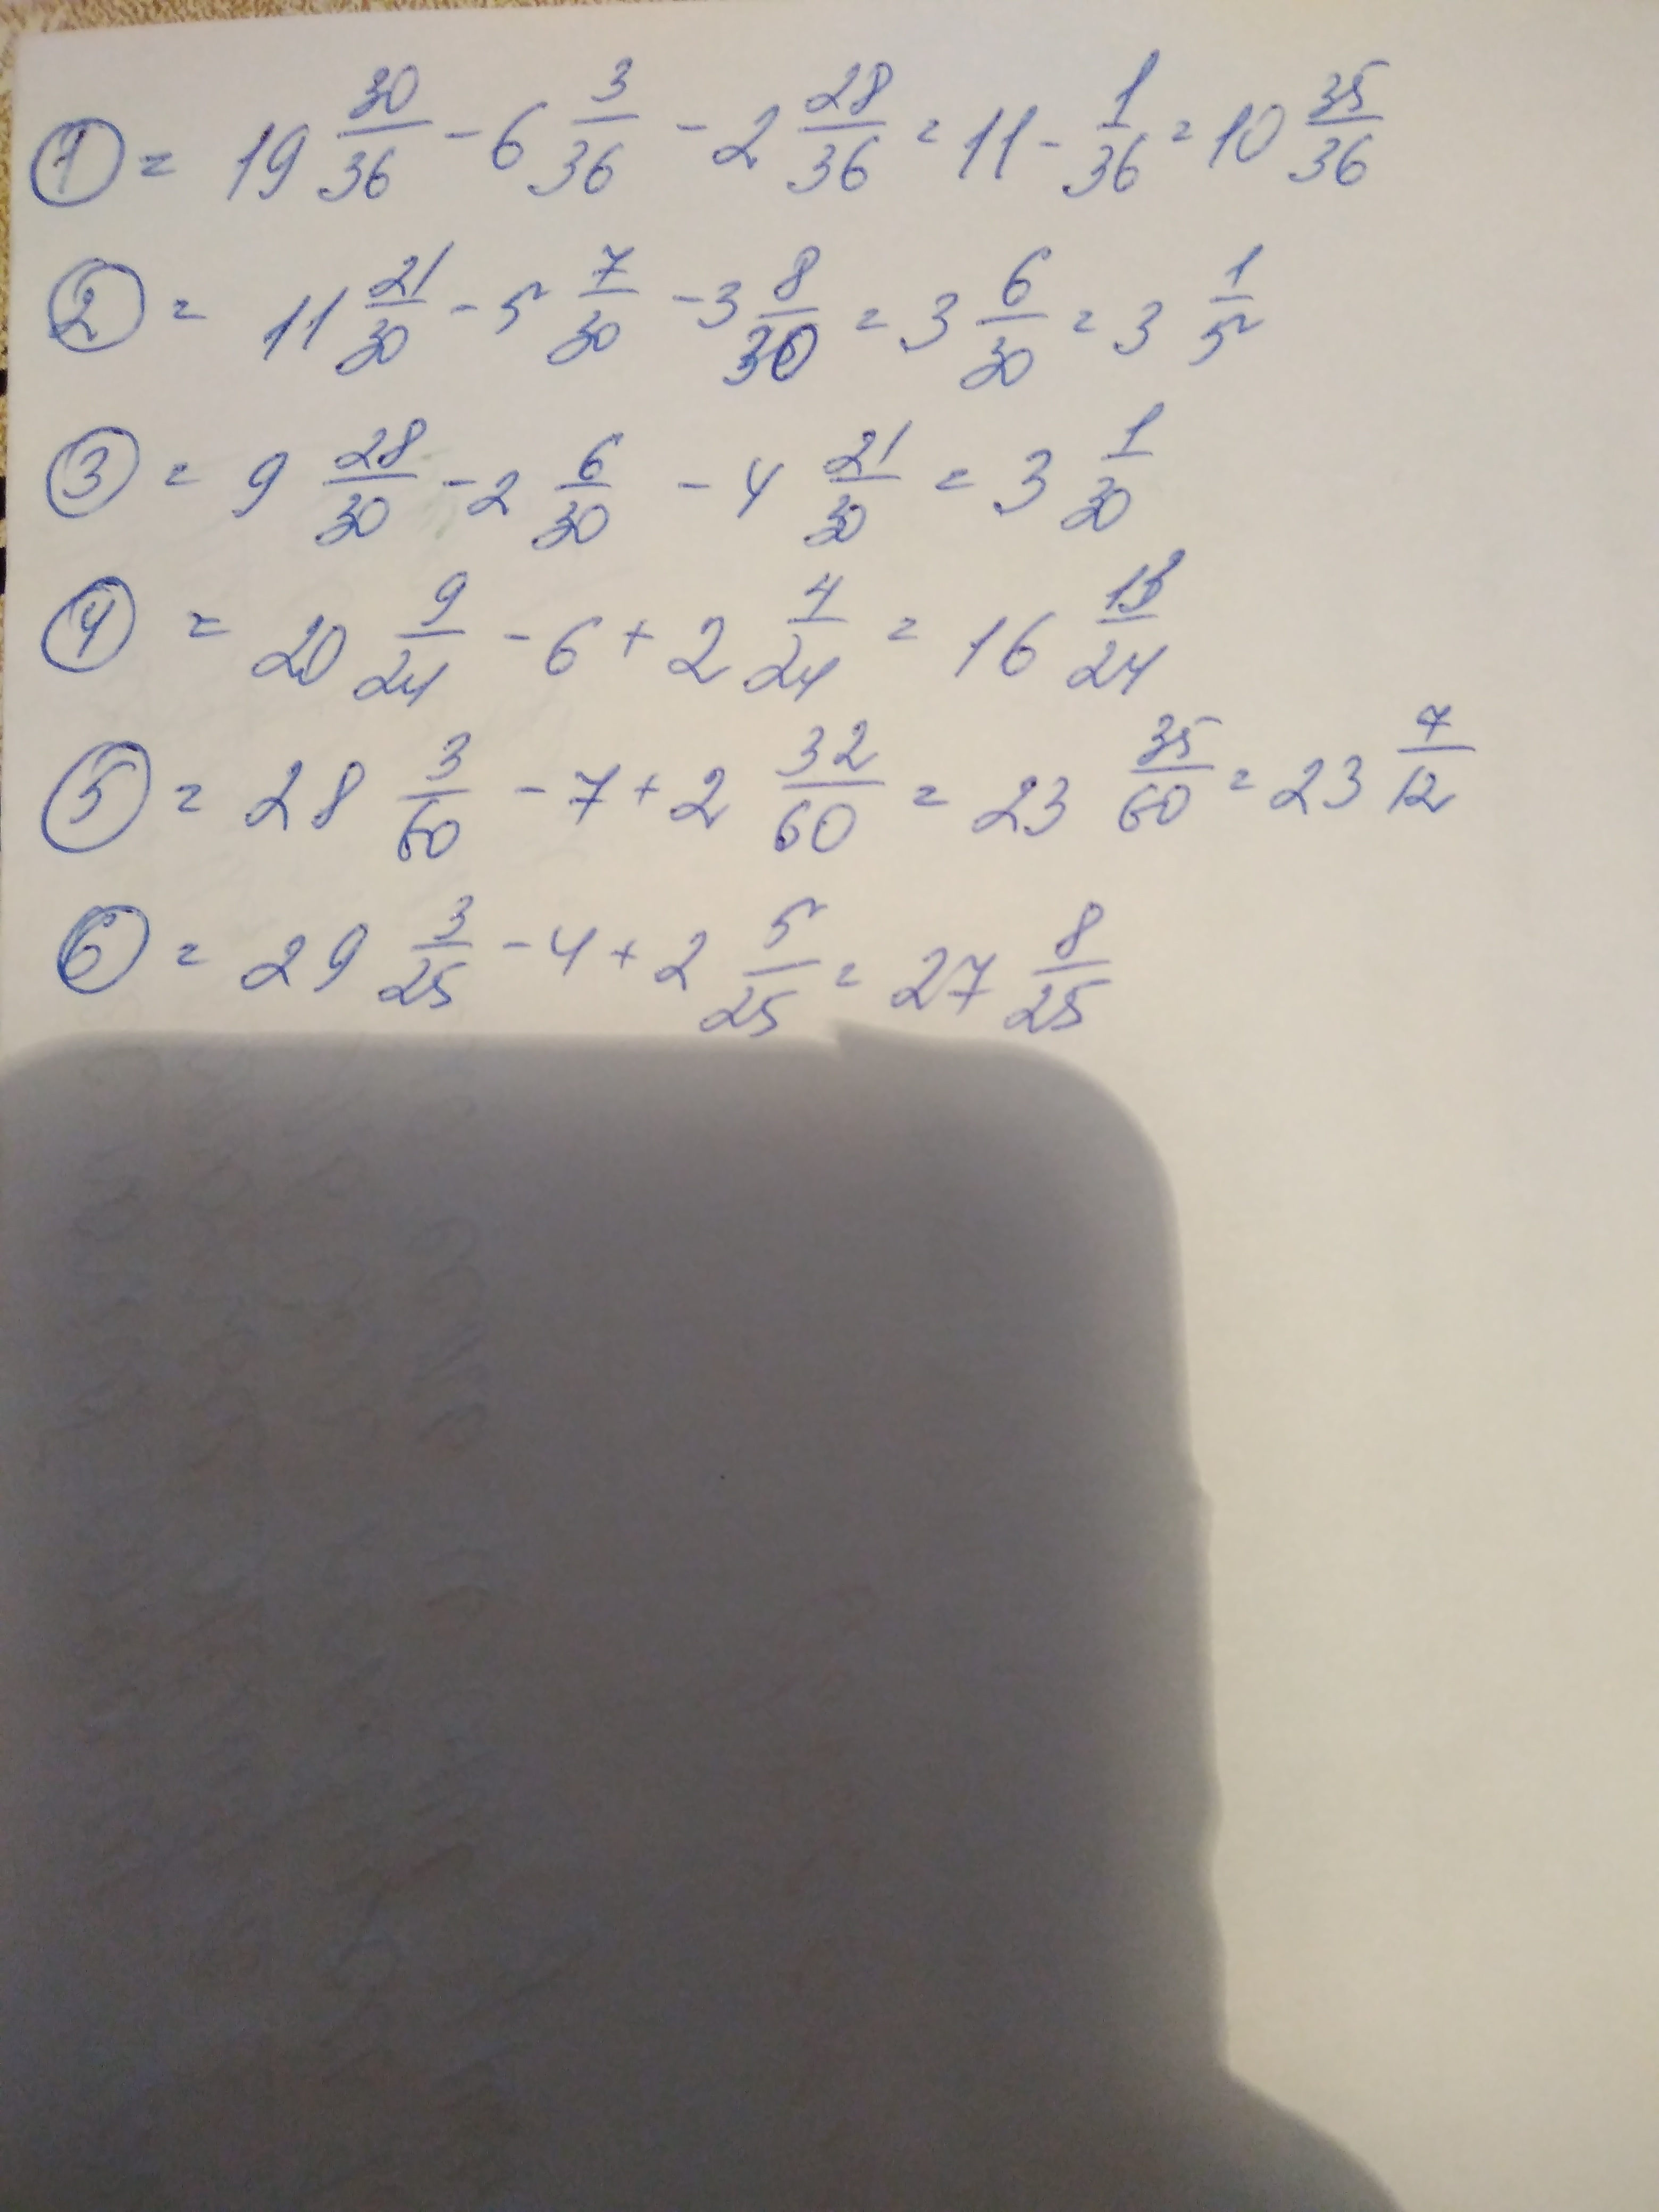 ① = 19 30/36 - 6 3/36 - 2 28/36 = 11 - 1/36 = 10 35/36
② = 11 21/30 - 5 7/30 - 3 8/30 = 3 6/30 = 3 1/5
③ = 9 28/30 - 2 6/30 - 4 21/30 = 3 1/30
④ = 20 9/24 - 6 + 2 4/24 = 16 13/24
⑤ = 28 3/60 - 7 + 2 32/60 = 23 35/60 = 23 7/12
⑥ = 29 3/25 - 4 + 2 5/25 = 27 8/25